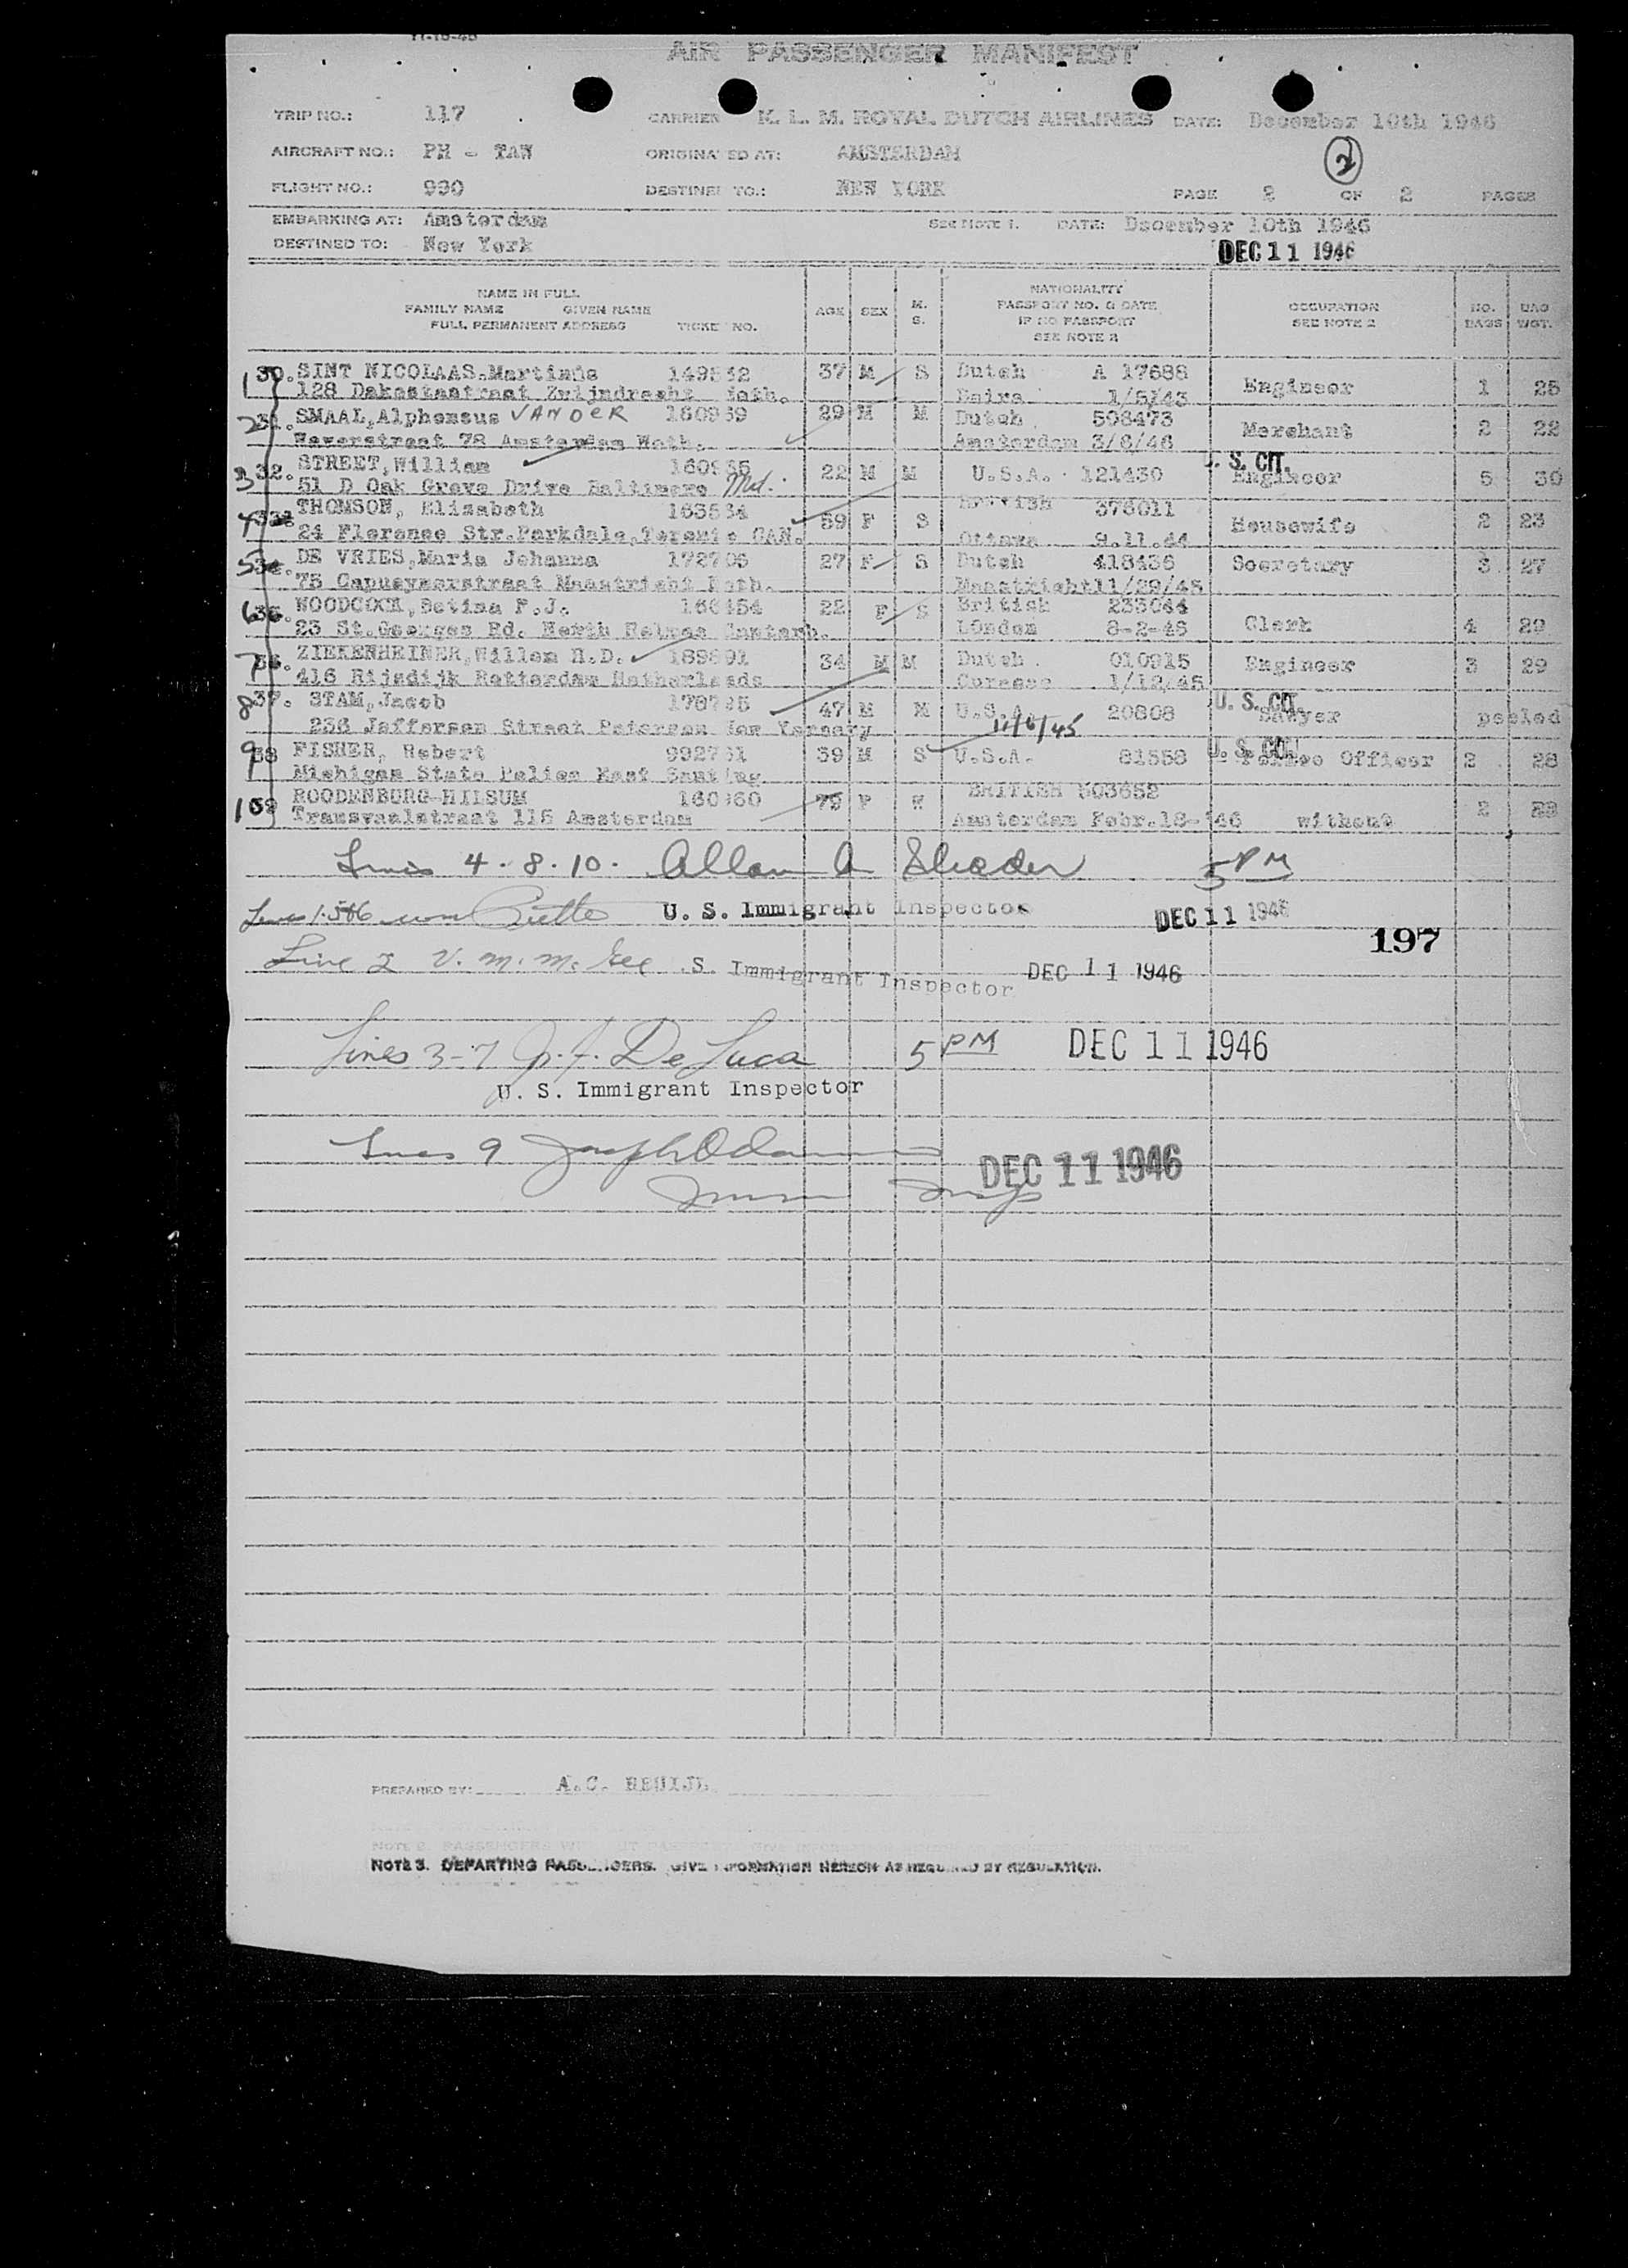 11-15-45
AIR PASSENGER MANIFEST
TRIP NO.: 117 CARRIER K. L. M. ROYAL DUTCH AIRLINES DATE: December 10th 1946
AIRCRAFT NO.: PH - TAW ORIGINATED AT: AMSTERDAM 2
FLIGHT NO.: 990 DESTINED TO.: NEW YORK PAGE 2 OF 2 PAGES
EMBARKING AT: Amsterdam SEE NOTE 1. DATE: December 10th 1946
DESTINED TO: New York DEC 11 1946
NAME IN FULL
FAMILY NAME GIVEN NAME
FULL PERMANENT ADDRESS TICKET NO. AGE SEX M. S. NATIONALITY PASSPORT NO. & DATE IF NO PASSPORT SEE NOTE 2 OCCUPATION SEE NOTE 2 NO. BAGS BAG WGT.
1 30. SINT NICOLAAS, Martinus 37 M S Dutch A 17688 Engineer 1 25
Neth. 1/5/43
2 31. SMAAL, Alphonsus VANDER 160939 29 M M Dutch 508473 Merchant 2 22
Weverstraat 78 Amsterdam Neth. Amsterdam 3/6/46
3 32. STREET, William 22 M M U.S.A. 121430 S. CIT. Engineer 5 30
51 D Oak Grove Drive Baltimore Md.
4 THOMSON, Elizabeth 59 F S British 376011 Housewife 2 23
24 Florence Str. Parkdale, Toronto CAN. Ottawa 9.11.44
5 DE VRIES, Maria Johanna 27 F S Dutch 418436 Secretary 3 27
Maastricht Neth. Maastricht 11/29/45
6 WOODCOCK, F.J. 22 F S British 233044 Clerk 4 29
23 St. Georges Rd. London 8-2-46
7 ZIEKENHEINER, Willem H.D. 34 M M Dutch 010915 Engineer 3 29
416 Rijsdijk Rotterdam Netherlands Curacao 1/12/45
8 37. STAM, Jacob 47 M M U.S.A. 20808 U. S. CIT. Lawyer pooled
236 Jefferson Street Paterson New Yersery 11/6/45
9 38 FISHER, Robert 39 M S U.S.A. 81558 U. S. CIT. Police Officer 2 28
Michigan State Police East
10 39 ROODENBURG-HILSUM 79 F W BRITISH 503652
Transvaalstraat 116 Amsterdam Amsterdam Febr. 18-'46 without 2 23
Lines 4. 8. 10. Allan A 5 PM
U. S. Immigrant Inspector DEC 11 1946
197
Line 2 V. M. McGee S. Immigrant Inspector DEC 11 1946
Lines 3-7 J. F. De Luca 5 PM DEC 11 1946
U. S. Immigrant Inspector
Lines 9 Joseph DEC 11 1946
PREPARED BY: A.C.
NOTE 3. DEPARTING PASSENGERS. GIVE INFORMATION HEREON AS REQUIRED BY REGULATION.